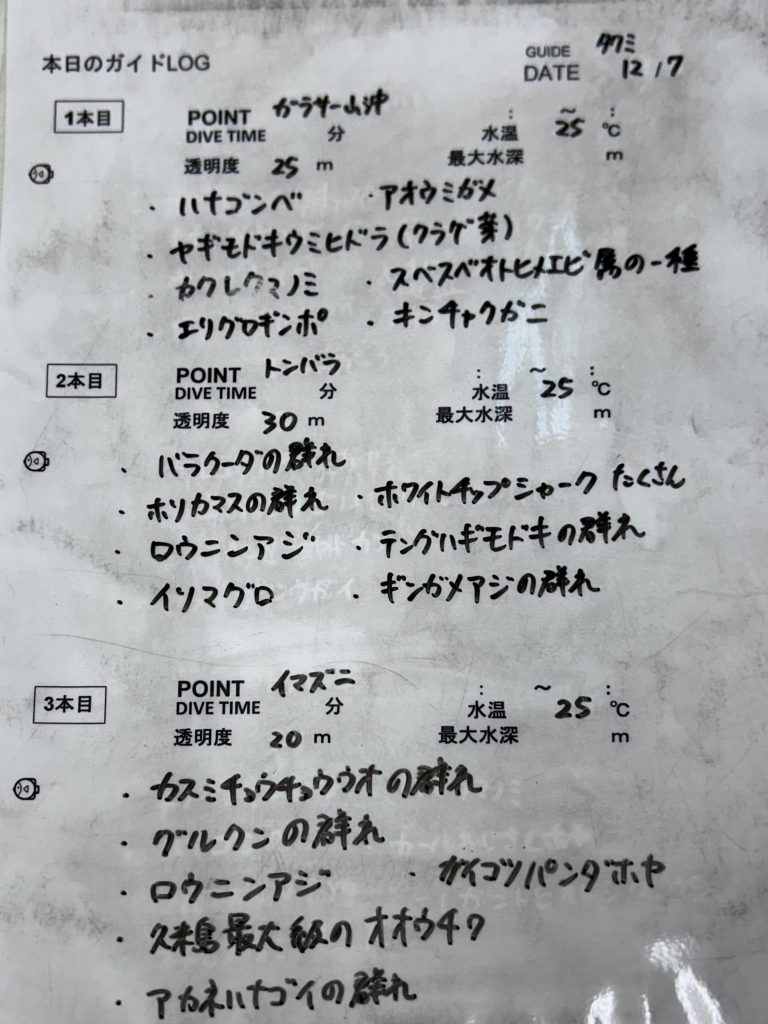 本日のガイドLOG
GUIDE タクミ
DATE 12/7
1本目 POINT ガラサー山沖
DIVE TIME 分 : ～ :
水温 25 ℃
透明度 25 m 最大水深 m
・ハナゴンベ ・アオウミガメ
・ヤギモドキウミヒドラ(クラゲ芽)
・カクレクマノミ ・スベスベオトヒメエビ属の一種
・エリグロギンポ ・キンチャクガニ
2本目 POINT トンバラ
DIVE TIME 分 : ～ :
水温 25 ℃
透明度 30 m 最大水深 m
・バラクーダの群れ
・ホソカマスの群れ ・ホワイトチップシャーク たくさん
・ロウニンアジ ・テングハギモドキの群れ
・イソマグロ ・ギンガメアジの群れ
3本目 POINT イマズニ
DIVE TIME 分 : ～ :
水温 25 ℃
透明度 20 m 最大水深 m
・カスミチョウチョウウオの群れ
・グルクンの群れ
・ロウニンアジ ・ガイコツパンダホヤ
・久米島最大級のオオウチワ
・アカネハナゴイの群れ